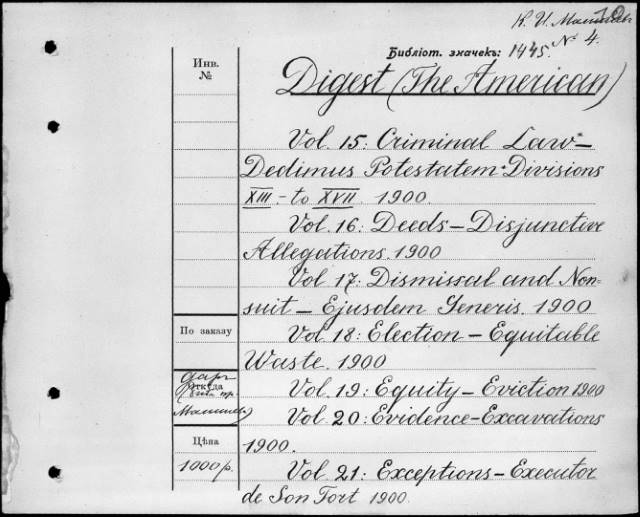 К. И. Малышев 10
Библіот. значекъ: 1445. № 4.
Инв. №
Digest (The American)
Vol. 15: Criminal Law –
Dedimus Potestatem. Divisions
XIII. – to XVII. 1900.
Vol. 16: Deeds – Disjunctive
Allegations. 1900
Vol. 17: Dismissal and Non-
suit – Ejusdem Generis. 1900
По заказу
Vol. 18: Election – Equitable
Waste. 1900
даръ
Откуда
Vol. 19: Equity – Eviction 1900
Vol. 20: Evidence – Excavations
1900.
Цѣна
1000 р.
Vol. 21: Exceptions – Executor
de Son Tort 1900.